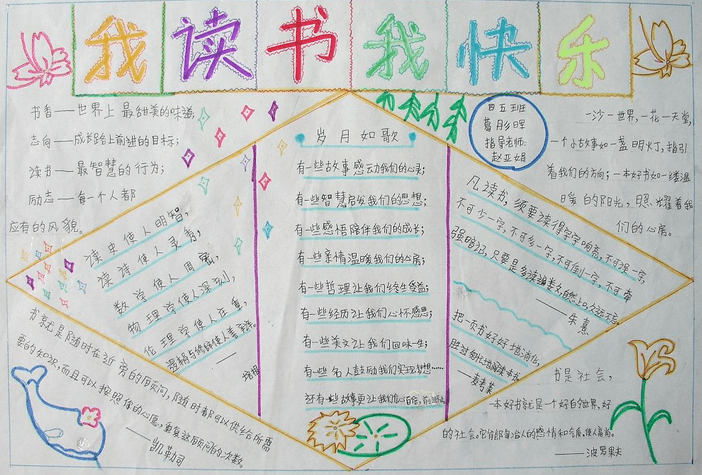 我读书我快乐
书香——世界上最甜美的味道,
志向——成长路上前进的目标;
读书——最智慧的行为;
励志——每一个人都
应有的风貌。
四五班
葛彤晖
指导老师:
赵亚娟
一沙一世界,一花一天堂,
一个小故事如一盏明灯,指引
着我们的方向;一本好书如一缕温
暖的阳光,照耀着我
们的心房。
读史使人明智,
读诗使人灵秀,
数学使人周密,
物理学使人深刻,
伦理学使人庄重,
逻辑与修辞使人善辩。
——培根
岁月如歌
有一些故事感动我们的心灵;
有一些智慧启发我们的思想;
有一些感悟陪伴我们的成长;
有一些亲情温暖我们的心房;
有一些哲理让我们终生受益;
有一些经历让我们心怀感恩;
有一些美文让我们回味一生;
有一些名人鼓励我们实现梦想……
还有一些故事更让我们
凡读书,须要读得字字响亮,不可误一字,
不可少一字,不可多一字,不可倒一字,不可牵
强暗记,只要是多读遍数,自然上口,久远不忘。
——朱熹
把一页书好好地消化,
胜过匆忙地阅读一本书。
——麦考莱
书就是随时在近旁的顾问,随时都可以供给你所需
要的知识,而且可以按照你的心愿,重复这顾问的次数。
——凯勒司
书是社会,
一本好书就是一个好的世界,好
的社会。它能陶冶人的感情和气质,使人高尚。
——波罗果夫